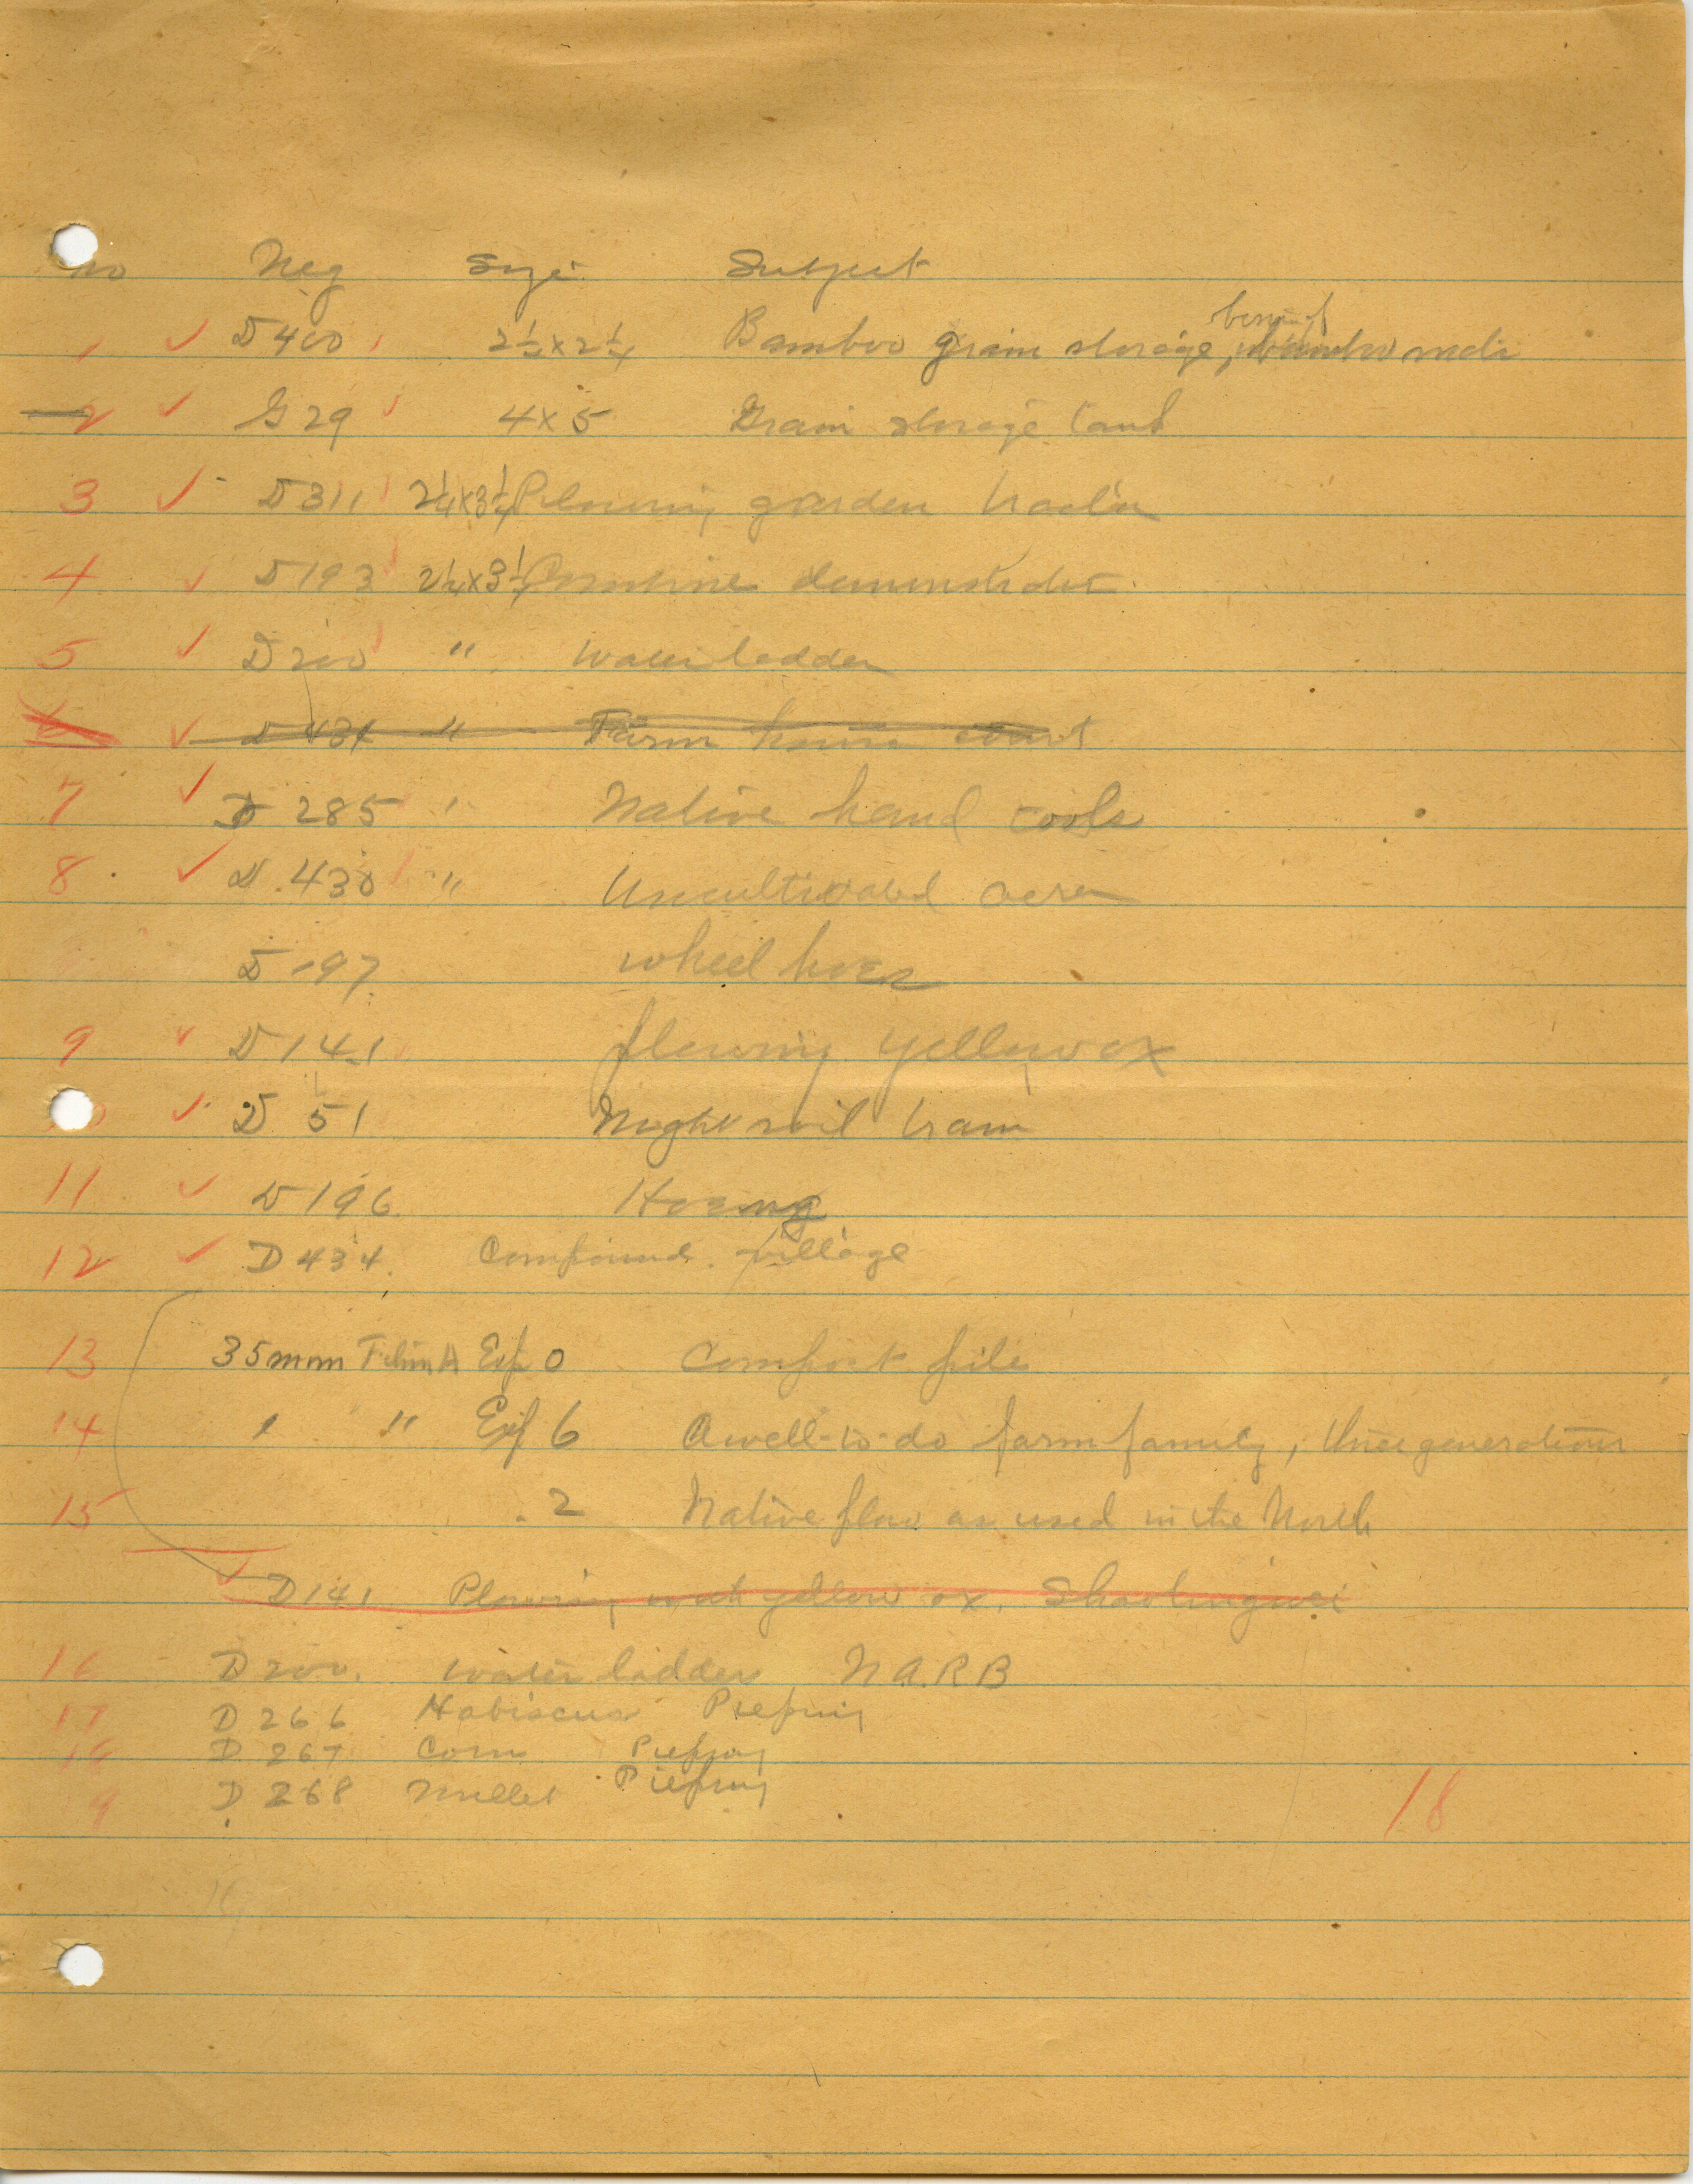 no Neg Size Subject
1 ✓ D400 2¼ x 2¼ Bamboo grain storage,
2 ✓ G29 4 x 5 Grain storage
3 ✓ D311 2¼ x 3¼ Plowing garden tractor
4 ✓ D193 2¼ x 3¼ demonstration
5 ✓ D200 " Water ladder
6 ✓ D431 " Farm house court
7 ✓ D 285 " Native hand tools
8 ✓ D 430 " Uncultivated
D 197 wheel hoes
9 ✓ D141 plowing yellow ox
10 ✓ D 51 Night soil train
11 ✓ D196 Hoeing
12 ✓ D434 Compound village
13 35mm Film A Exp 0 Compost pile
14 " " Exp 6 A well-to-do farm family, three generations
15 2 Native plow as used in the North
✓ D141 Plowing with yellow ox, Shaolingwei
16 D200. Water ladder N.A.R.B
17 D266 Habiscus Pieping
18 D 267 Corn Pieping
19 D 268 Millet Pieping
18